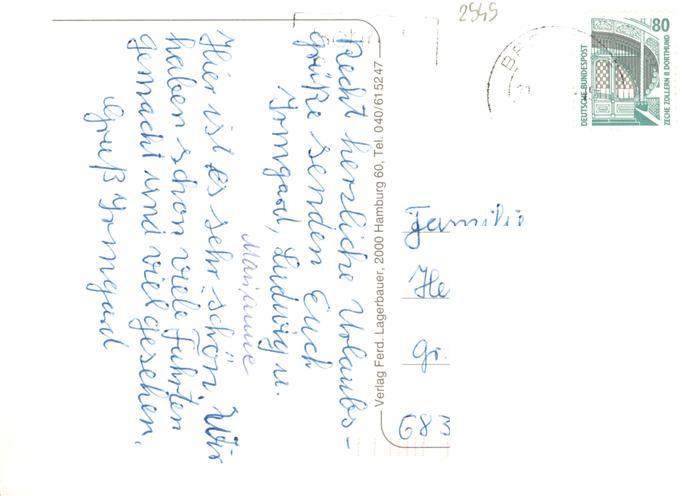 2545
80
DEUTSCHE BUNDESPOST
ZECHE ZOLLERN II DORTMUND
Recht herzliche Urlaubs-
grüße senden Euch
Irmgard, Ludwig u.
Marianne
Hier ist es sehr schön. Wir
haben schon viele Fahrten
gemacht und viel gesehen.
Gruß Irmgard
Verlag Ferd. Lagerbauer, 2000 Hamburg 60, Tel. 040/615247
Familie
He
Gr.
683